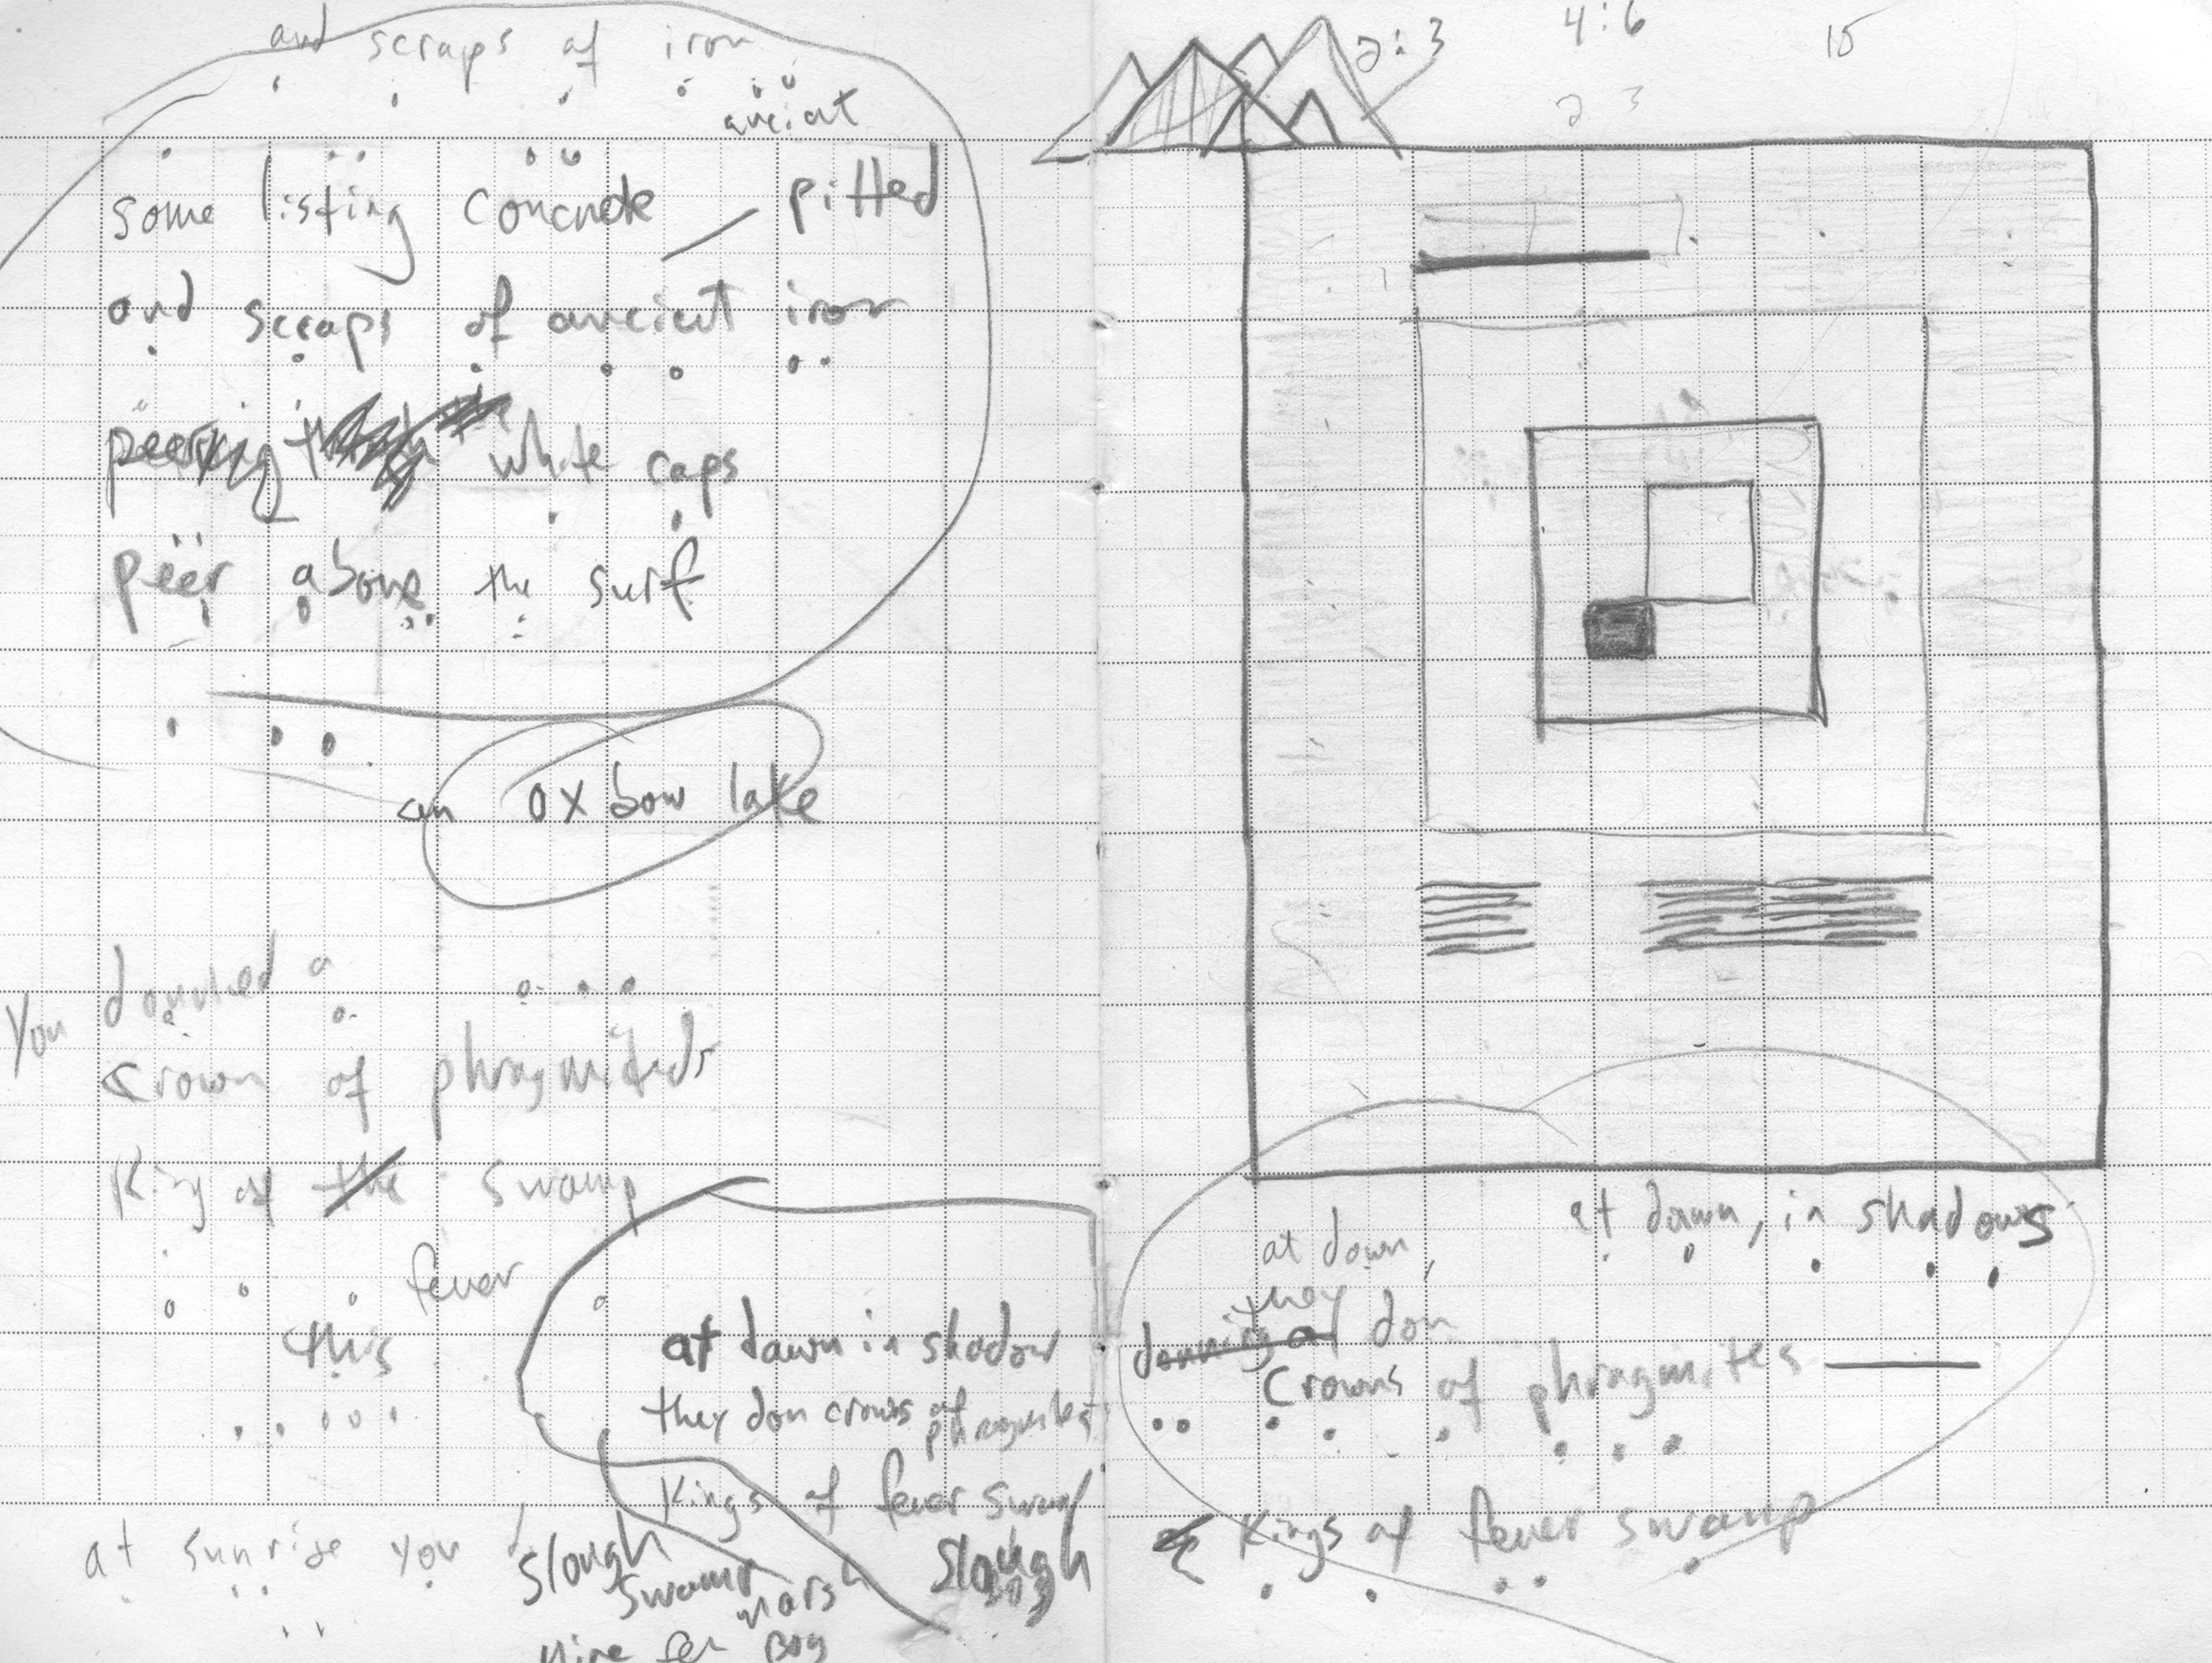 and scraps of iron
ancient
some listing concrete pitted
and scraps of ancient iron
peering the white caps
peer above the surf
an oxbow lake
donned a
You
crown of
King of the swamp
fever
this
at dawn in shadow
they don crowns of
Kings of fever swamp
at sunrise you
slough
slough
swamp
marsh
Mire fen Bog
2:3 4:6 15
2 3
at dawn, in shadows
at dawn,
they
donning a don
crowns of phragmites
Kings of fever swamp